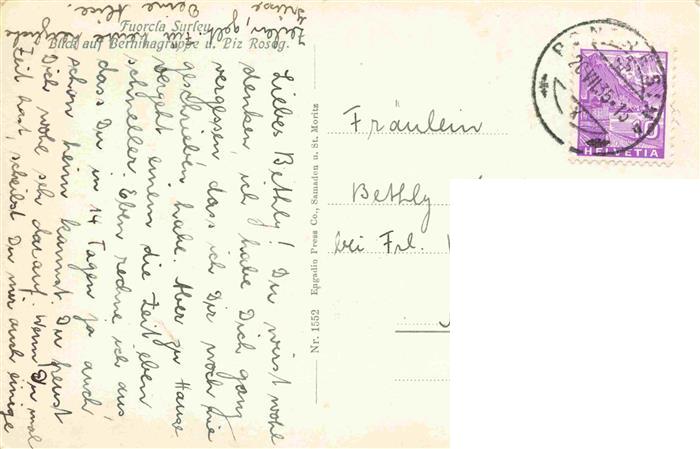 Fuorcla Surley
Blick auf Berninagruppe u. Piz Roseg.
Liebes Bethly! Du wirst wohl
denken, ich habe Dich ganz
vergessen dass ich Dir noch nie
geschrieben habe. Aber zu Hause
vergeht einem die Zeit eben
schneller. Eben rechne ich aus
dass Du in 14 Tagen ja auch
schon heim kannst. Du freust
Dich wohl sehr darauf. Wenn Du mal
Zeit hast, scheibst Du mir auch einige
Zeilen, gelt
Für heute
Grüsse
Deine Alice.
Nr. 1552 Engadin Press Co., Samaden u. St. Moritz
Fräulein
Bethly
bei Frl.
PONTRESINA
HELVETIA